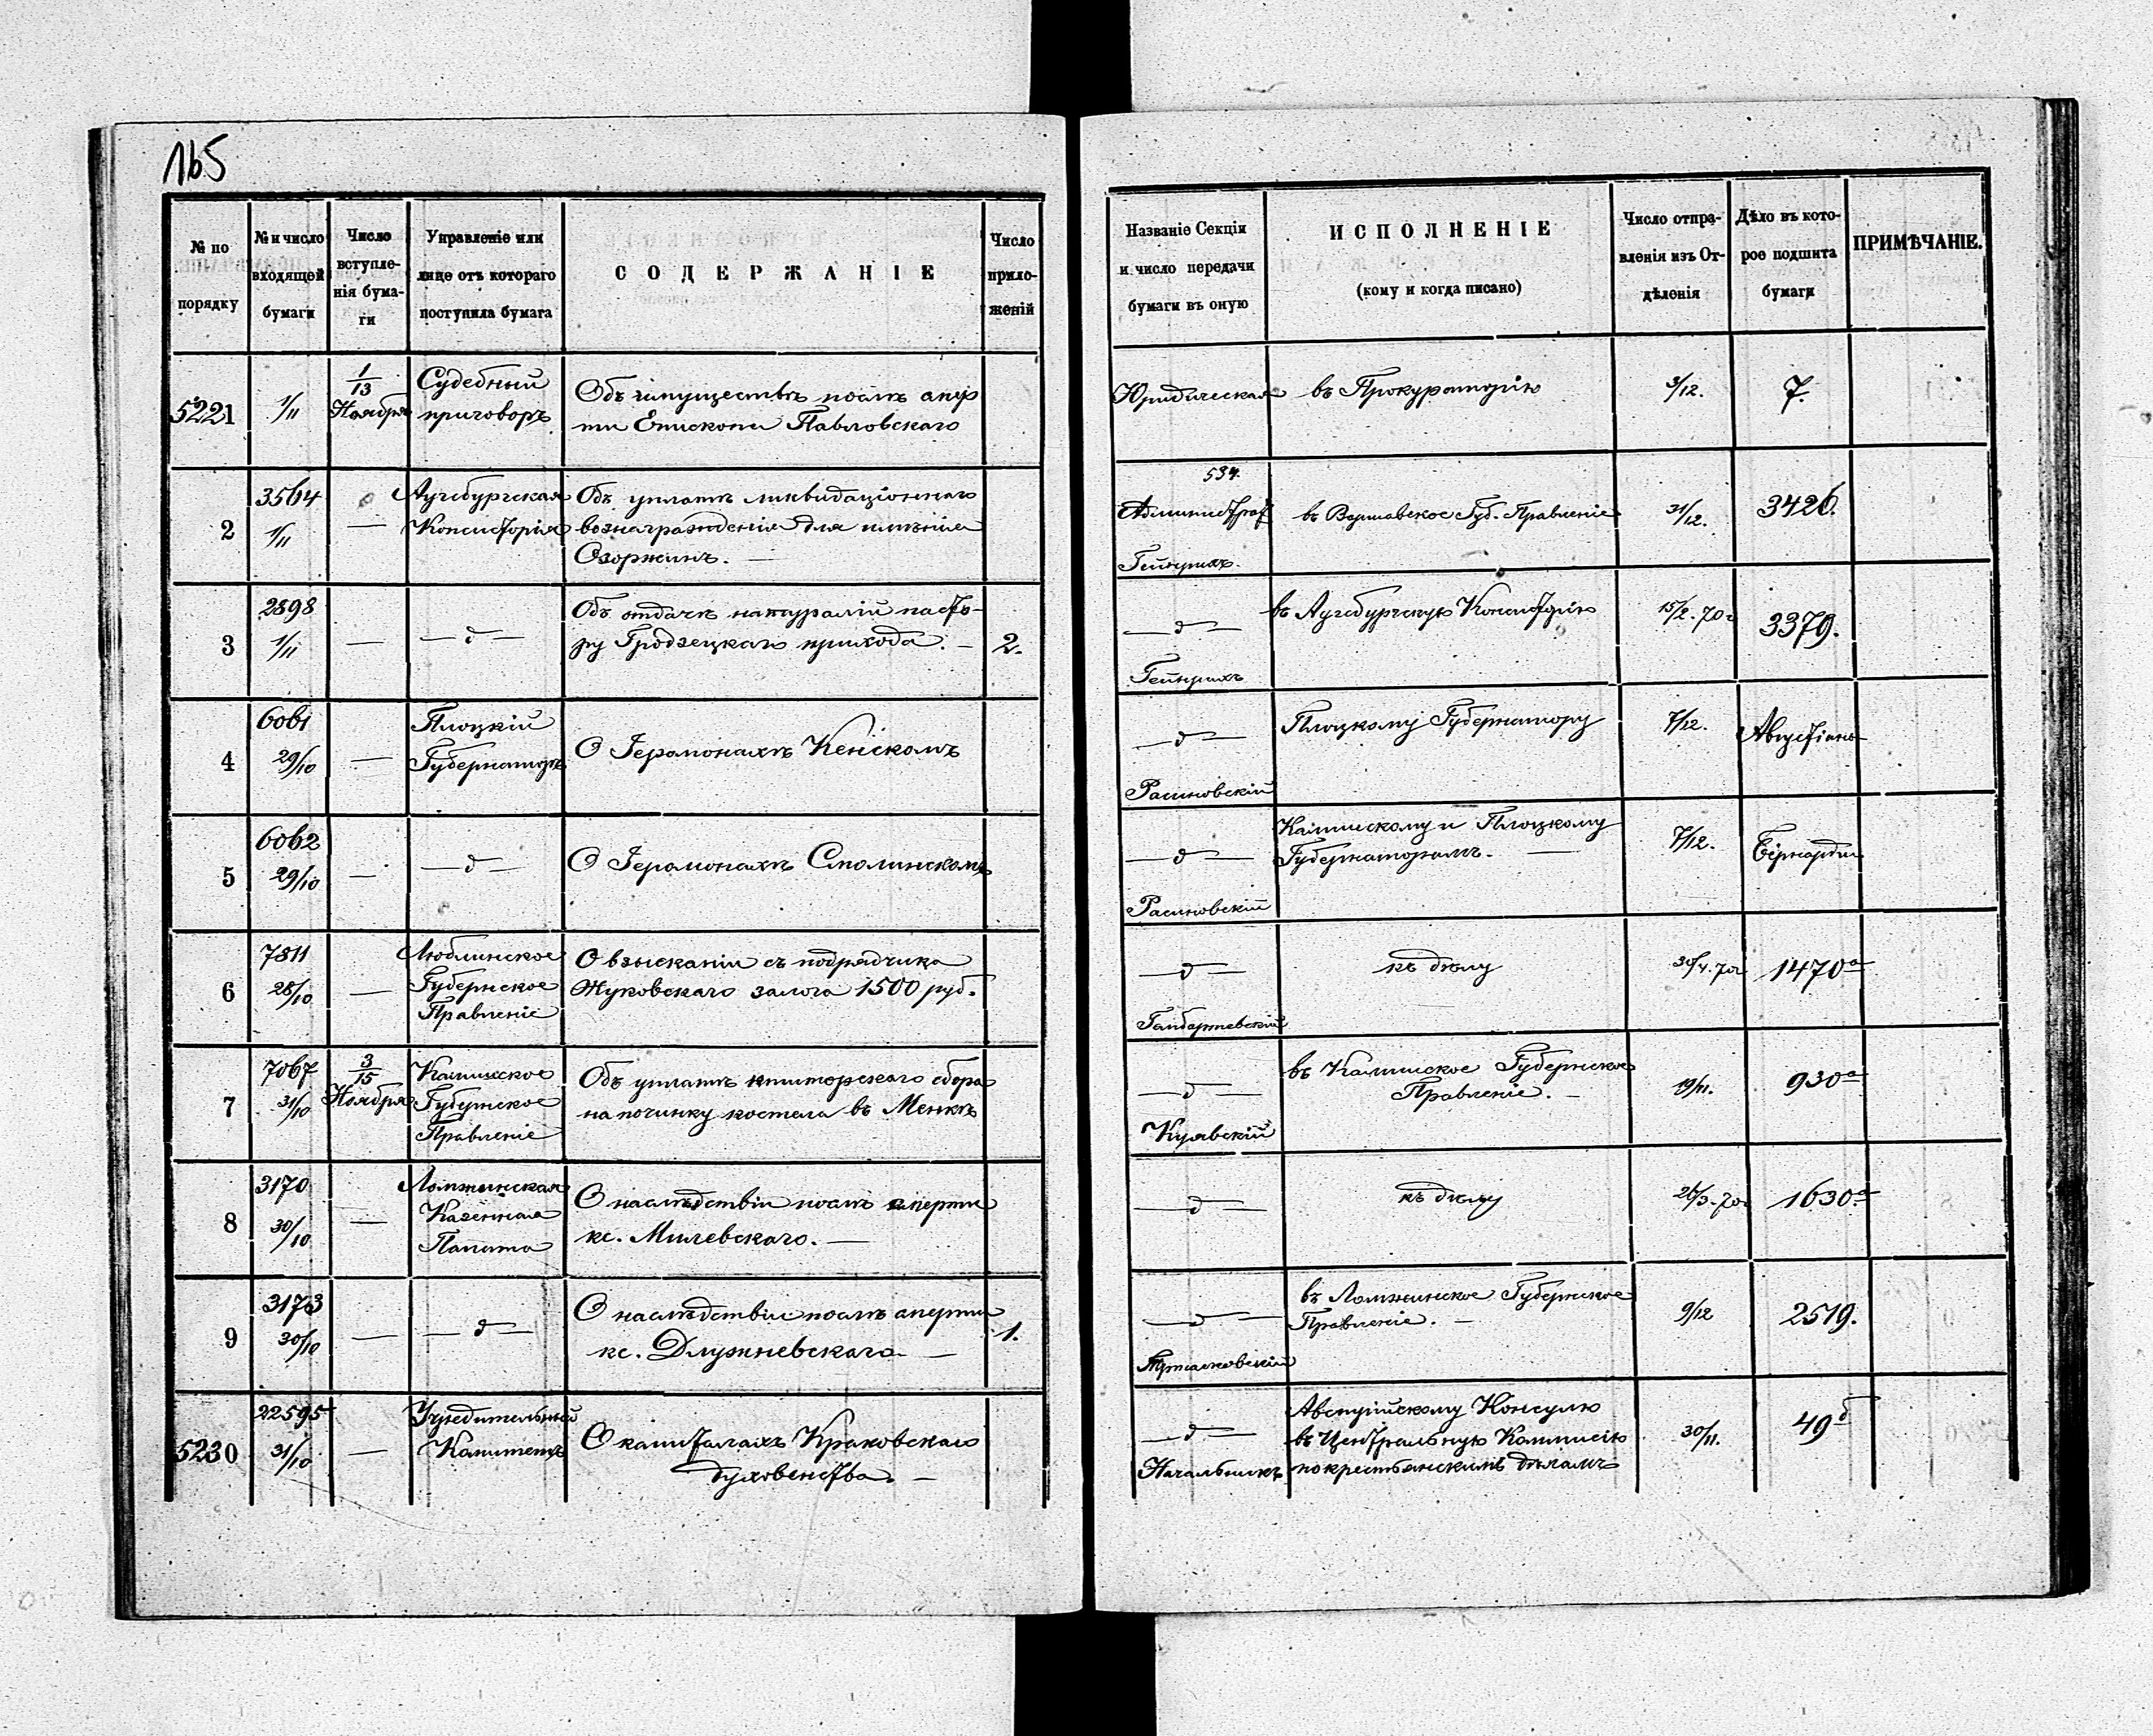 165
№ по порядку
№ и число входящей бумаги
Число вступле-нія бума-ги
Управленіе или лице отъ котораго поступила бумага
СОДЕРЖАНІЕ
Число прило-женій
Названіе Секціи и число передачи бумаги въ оную
ИСПОЛНЕНІЕ
(кому и когда писано)
Число отпра-вленія изъ От-дѣленія
Дѣло въ кото-рое подшита бумаги
ПРИМѢЧАНІЕ.
5221
1/11
1/13 Ноября
Судебный
приговоръ
Объ имуществѣ послѣ смер
ти Епископа Павловскаго
Юридическая
въ Прокураторію
3/12.
7.
2
3564
1/11
—
Аугсбургская
Консисторія
Объ уплатѣ ликвидаціоннаго
вознагражденія для имѣнія
Озоржинъ. —
534.
Административ
Гейнрихъ.
въ Варшавское Губ. Правленіе
31/12.
3426.
3
2898
1/11
—
— д —
Объ отдачѣ натуралій пасто-
ру Гродзецкаго прихода. —
2.
— д —
Гейнрихъ
въ Аугсбургскую Консисторію
15/2. 70 г
3379.
4
6061
29/10
—
Плоцкій
Губернаторъ
О Іеромонахѣ Кенскомъ
— д —
Расиновскій
Плоцкому Губернатору
7/12.
5
6062
29/10
—
— д —
О Іеромонахѣ Смолинскомъ
— д —
Расиновскій
Калишскому и Плоцкому
Губернаторамъ. —
7/12.
Бернарди
6
7811
28/10
—
Люблинское
Губернское
Правленіе
О взысканіи съ подрядчика
Жуковскаго залога 1500 руб.
— д —
къ дѣлу
30/4. 70 г
1470 а
7
7067
31/10
3/15 Ноября
Калишское
Губернское
Правленіе
Объ уплатѣ ктиторскаго сбора
на починку костела въ Менкѣ
— д —
Куявскій
въ Калишское Губернское
Правленіе. —
19/11.
930 а
8
3170
30/10
—
Ломжинская
Казенная
Палата
О наслѣдствіи послѣ смерти
кс. Милевскаго. —
— д —
къ дѣлу
26/3. 70 г
1630 а
9
3173
30/10
—
— д —
О наслѣдствіи послѣ смерти
кс. Длужневскаго —
1.
— д —
въ Ломжинское Губернское
Правленіе. —
9/12
2519.
5230
22595
31/10
—
Учредительный
Комитетъ
О капиталахъ Краковскаго
духовенства. —
— д —
Начальникъ
Австрійскому Консулю
въ Центральную Коммисію
по крестьянскимъ дѣламъ
30/11.
49 б